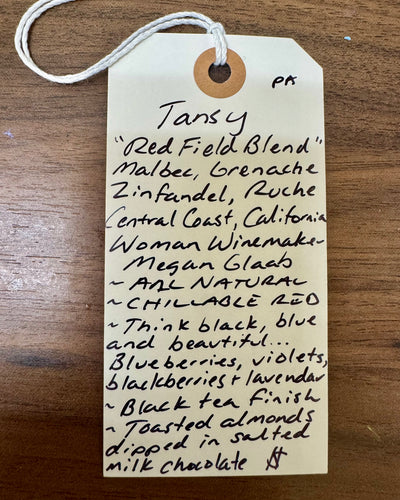 PK
Tansy
"Red Field Blend"
Malbec, Grenache
Zinfandel, Ruche
Central Coast, California
Woman Winemaker
Megan Glaab
~ ALL NATURAL
~ CHILLABLE RED
~ Think black, blue
and beautiful...
Blueberries, violets,
blackberries + lavendar
~ Black tea finish
~ Toasted almonds
dipped in salted
milk chocolate